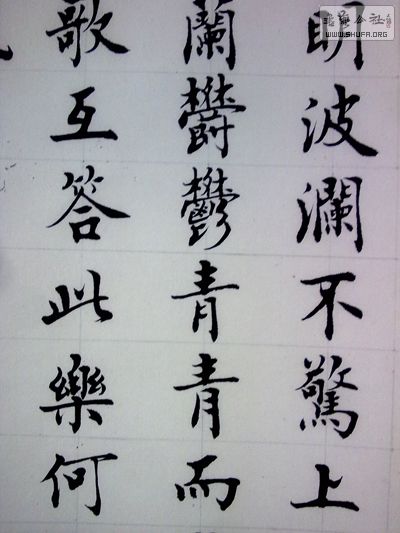 公社
WWW.SHUFA.ORG
明波瀾不驚上
蘭欝鬱青青而
歌互答此樂何